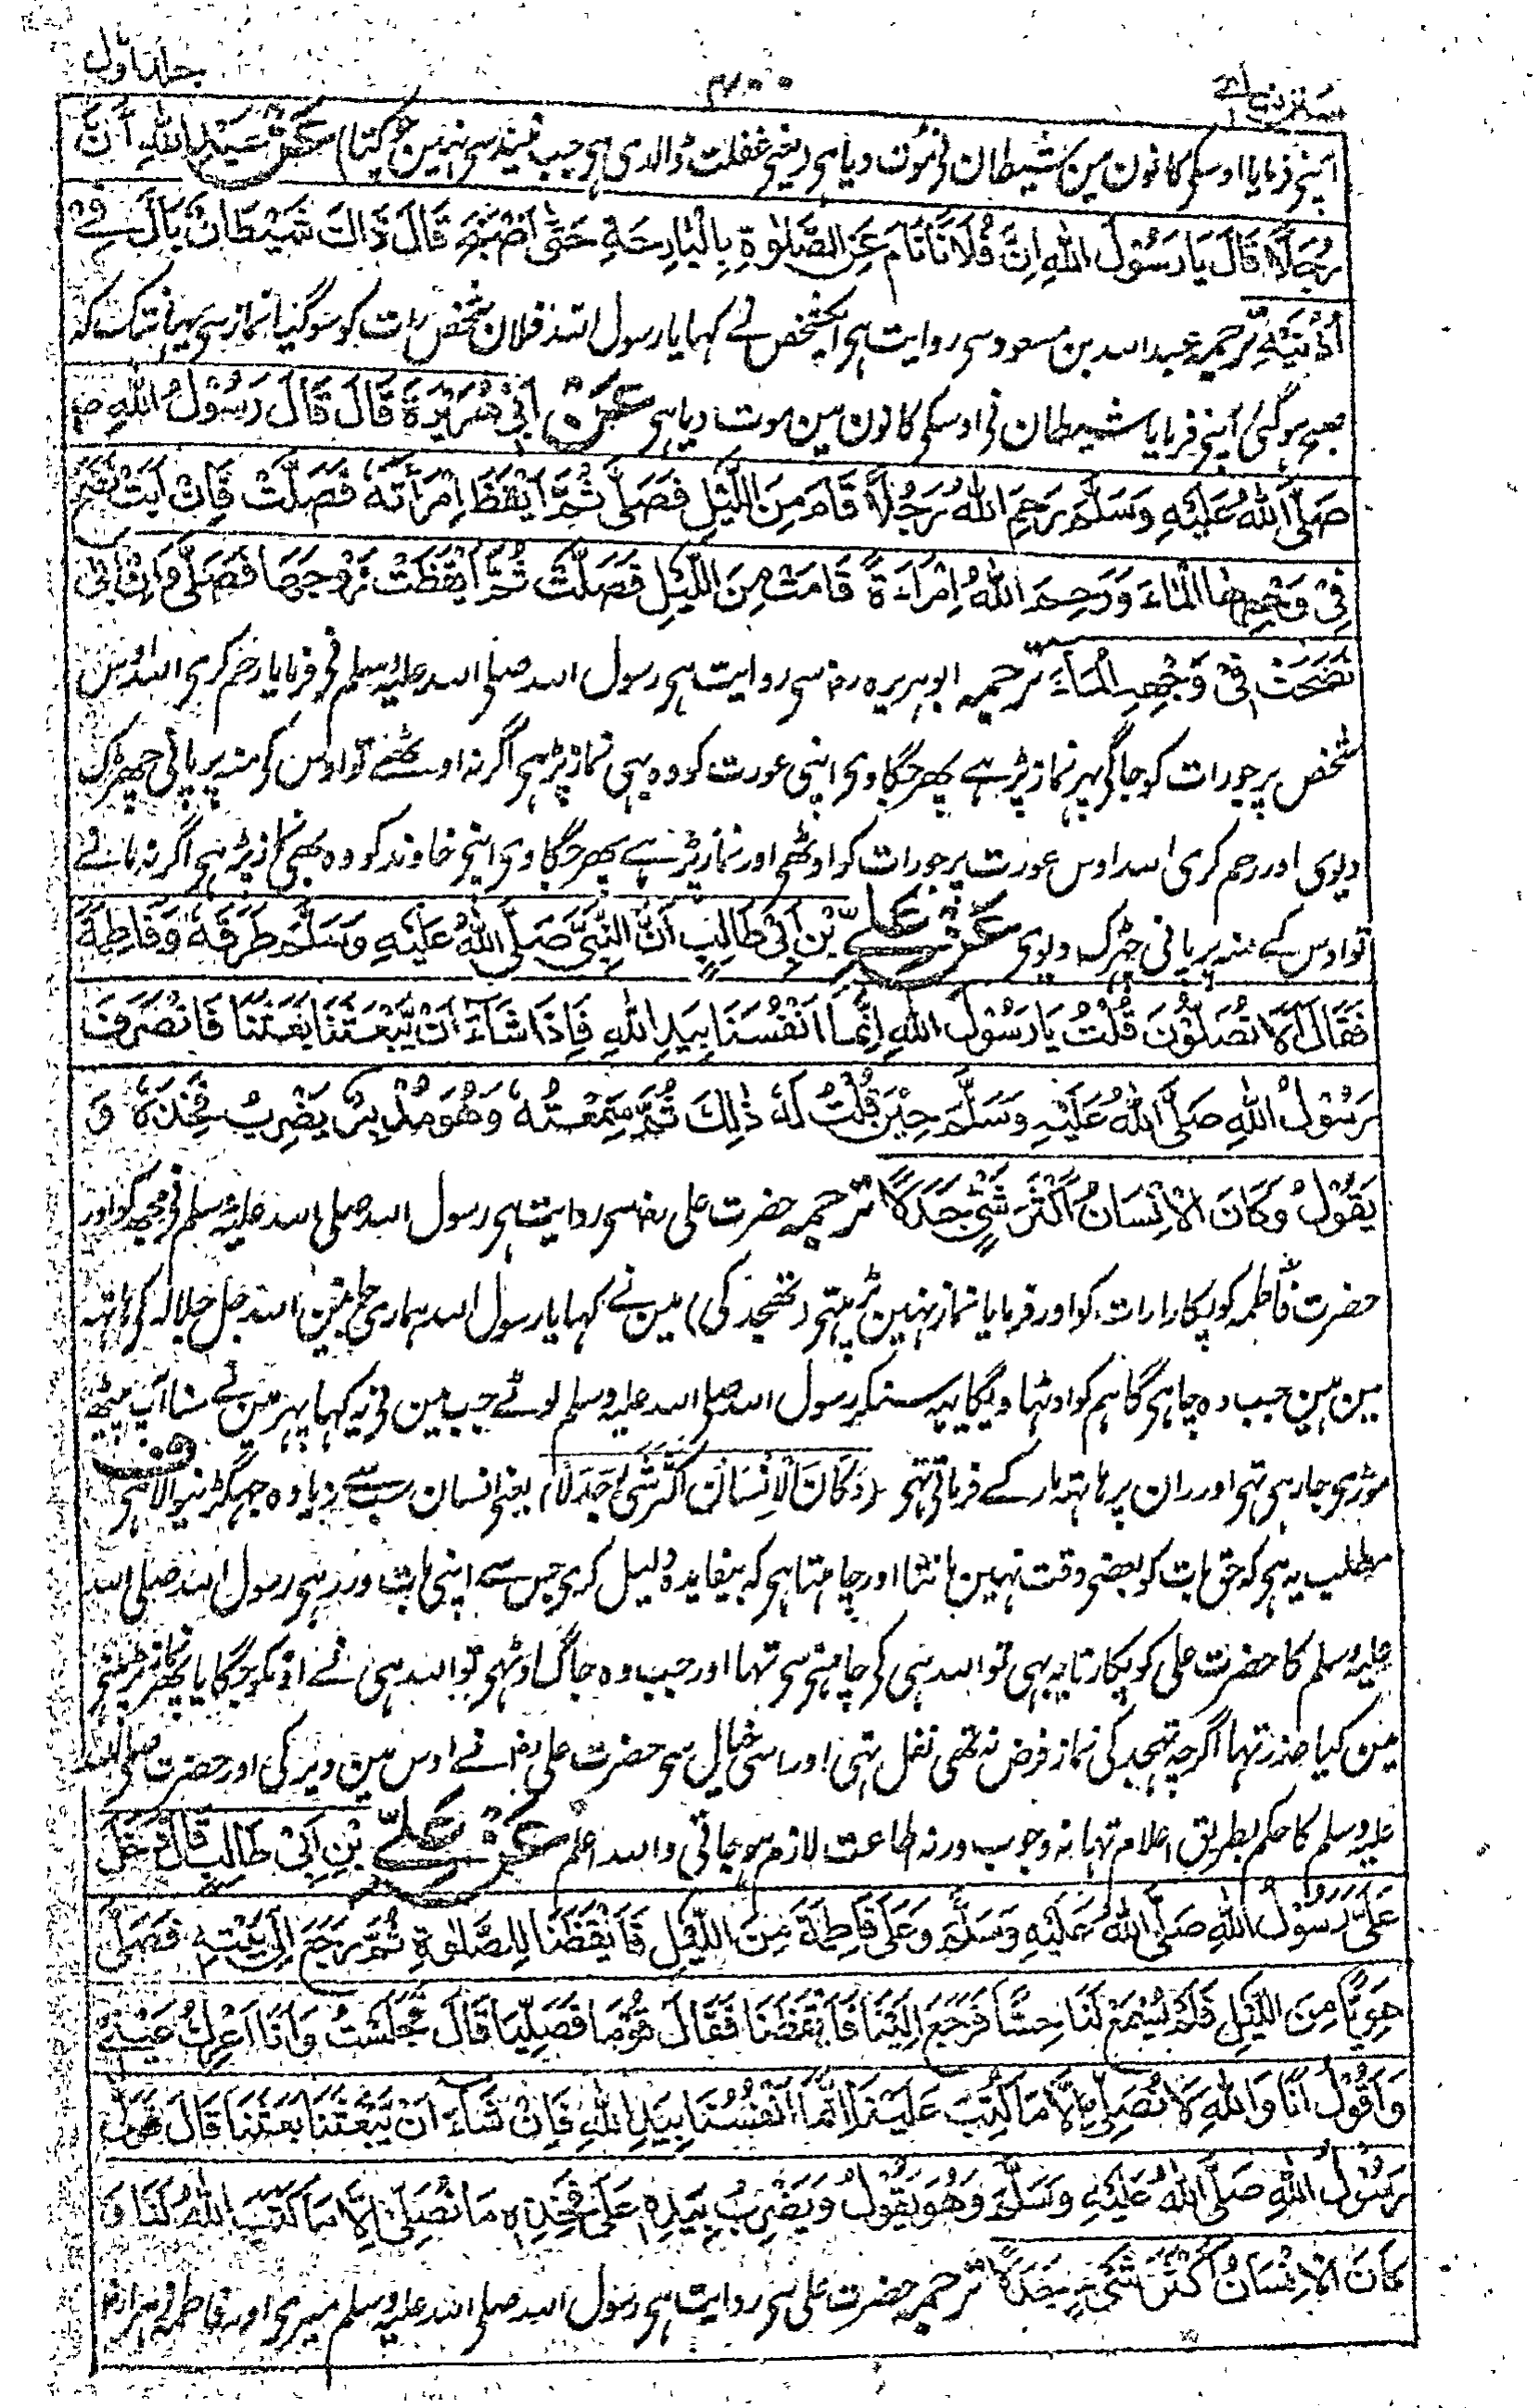 سنن نسائی ۴۰۰ جلد اول
اپنے فرمایا اوسکی کانون مین شیطان نی موت دیا ہی (یعنے غفلت ڈالدی ہی جب نیند سی نہین چوکتا) عَنْ عَبْدِ اللهِ أَنَّ
رَجُلًا قَالَ يَا رَسُوْلَ اللهِ اِنَّ فُلَانًا نَامَ عَنِ الصَّلٰوةِ بِالْبَارِحَةِ حَتّٰى اَصْبَحَ قَالَ ذَاكَ شَيْطَانٌ بَالَ فِيْ
اُذُنَيْهِ ترجمہ عبد اللہ بن مسعود سی روایت ہی ایکشخص نے کہا یا رسول اللہ فلان شخص رات کو سو گیا نماز سی یہانتک کہ
صبح ہوگئی اپنی فرمایا شیطان نی اوسکی کانون مین موت دیا ہی عَنْ اَبِيْ هُرَيْرَةَ قَالَ قَالَ رَسُوْلُ اللهِ
صَلَّى اللهُ عَلَيْهِ وَسَلَّمَ رَحِمَ اللهُ رَجُلًا قَامَ مِنَ اللَّيْلِ فَصَلّٰى ثُمَّ اَيْقَظَ اِمْرَأَتَهٗ فَصَلَّتْ فَاِنْ اَبَتْ نَضَحَ
فِيْ وَجْهِهَا الْمَاءَ وَرَحِمَ اللهُ اِمْرَاَةً قَامَتْ مِنَ اللَّيْلِ فَصَلَّتْ ثُمَّ اَيْقَظَتْ زَوْجَهَا فَصَلّٰى وَاِنْ اَبٰى
نَضَحَتْ فِيْ وَجْهِهِ الْمَاءَ ترجمہ ابو ہریرہ رض سی روایت ہی رسول اللہ صلی اللہ علیہ وسلم نی فرمایا رحم کری اللہ اوس
شخص پر جو رات کو جاگی پہر نماز پڑہے پھر جگاوی اپنی عورت کو وہ بہی نماز پڑہی اگر نہ اوٹھے تو اوس کو منہ پر پانی چھڑک
دیوی اور رحم کری اللہ اوس عورت پر جو رات کو اوٹھی اور نماز پڑہے پھر جگاوی اپنی خاوند کو وہ بھی نماز پڑہی اگر نہ مانے
تو اوس کے منہ پر پانی چہڑک دیوی عَنْ عَلِيِّ بْنِ اَبِيْ طَالِبٍ اَنَّ النَّبِيَّ صَلَّى اللهُ عَلَيْهِ وَسَلَّمَ طَرَقَهٗ وَفَاطِمَةَ
فَقَالَ اَلَا تُصَلُّوْنَ قُلْتُ يَا رَسُوْلَ اللهِ اِنَّمَا اَنْفُسُنَا بِيَدِ اللهِ فَاِذَا شَاءَ اَنْ يَّبْعَثَنَا بَعَثَنَا فَانْصَرَفَ
رَسُوْلُ اللهِ صَلَّى اللهُ عَلَيْهِ وَسَلَّمَ حِيْنَ قُلْتُ لَهٗ ذٰلِكَ ثُمَّ سَمِعْتُهٗ وَهُوَ مُدْبِرٌ يَضْرِبُ فَخِذَهٗ وَ
يَقُوْلُ وَكَانَ الْاِنْسَانُ اَكْثَرَ شَيْءٍ جَدَلًا ترجمہ حضرت علی رض سی روایت ہی رسول اللہ صلی اللہ علیہ وسلم نی مجہکو اور
حضرت فاطمہ کو پکارا رات کو اور فرمایا نماز نہین پڑہتے (تھجد کی) مین نے کہا یا رسول اللہ ہماری جانین اللہ جل جلالہ کی ہاتہہ
مین ہین جب وہ چاہی گا ہم کو اوٹہا دیگا یہہ سنکر رسول اللہ صلی اللہ علیہ وسلم لوٹے جب مین نی یہ کہا پہر مین نے سنا آپ پیٹھ
موڑی جا رہی تہی اور ران پر ہاتہہ مار کے فرماتی تہی (وَكَانَ الْاِنْسَانُ اَكْثَرَ شَيْءٍ جَدَلًا) یعنی انسان سب سے زیادہ جہگڑنیوالا ہی ف
مطلب یہ ہی کہ حق بات کو بعضی وقت نہین مانتا اور چاہتا ہی کہ بیفایدہ دلیل کری جس سے اپنی بات ور رہی رسول اللہ صلی اللہ
علیہ وسلم کا حضرت علی کو پکارنا یہ بہی تو اللہ ہی کی چاہنی سی تہا اور جب وہ جاگ اوٹہی تو اللہ ہی نے اونکو جگایا پھر نماز پڑہنی
مین کیا عذر تہا اگرچہ تہجد کی نماز فرض نہ تھی نفل تہی اور اسی خیال سی حضرت علی رض نے اوس مین دیر کی اور حضرت صلی اللہ
علیہ وسلم کا حکم بطریق اعلام تہا نہ وجوب ورنہ اطاعت لازم ہو جاتی واللہ اعلم عَنْ عَلِيِّ بْنِ اَبِيْ طَالِبٍ قَالَ دَخَلَ
عَلَيَّ رَسُوْلُ اللهِ صَلَّى اللهُ عَلَيْهِ وَسَلَّمَ وَعَلٰى فَاطِمَةَ مِنَ اللَّيْلِ فَاَيْقَظَنَا لِلصَّلٰوةِ ثُمَّ رَجَعَ اِلٰى بَيْتِهٖ فَصَلّٰى
هَوِيًّا مِنَ اللَّيْلِ فَلَمْ يَسْمَعْ لَنَا حِسًّا فَرَجَعَ اِلَيْنَا فَاَيْقَظَنَا فَقَالَ قُوْمَا فَصَلِّيَا قَالَ فَجَلَسْتُ وَاَنَا اَعْرُكُ عَيْنَيَّ
وَاَقُوْلُ اَنَا وَاللهِ لَا نُصَلِّيْ اِلَّا مَا كُتِبَ عَلَيْنَا اِنَّمَا اَنْفُسُنَا بِيَدِ اللهِ فَاِنْ شَاءَ اَنْ يَّبْعَثَنَا بَعَثَنَا قَالَ فَوَلّٰى
رَسُوْلُ اللهِ صَلَّى اللهُ عَلَيْهِ وَسَلَّمَ وَهُوَ يَقُوْلُ وَيَضْرِبُ بِيَدِهٖ عَلٰى فَخِذِهٖ مَا نُصَلِّيْ اِلَّا مَا كَتَبَ اللهُ لَنَا وَ
كَانَ الْاِنْسَانُ اَكْثَرَ شَيْءٍ جَدَلًا ترجمہ حضرت علی سی روایت ہی رسول اللہ صلی اللہ علیہ وسلم میری اور فاطمہ